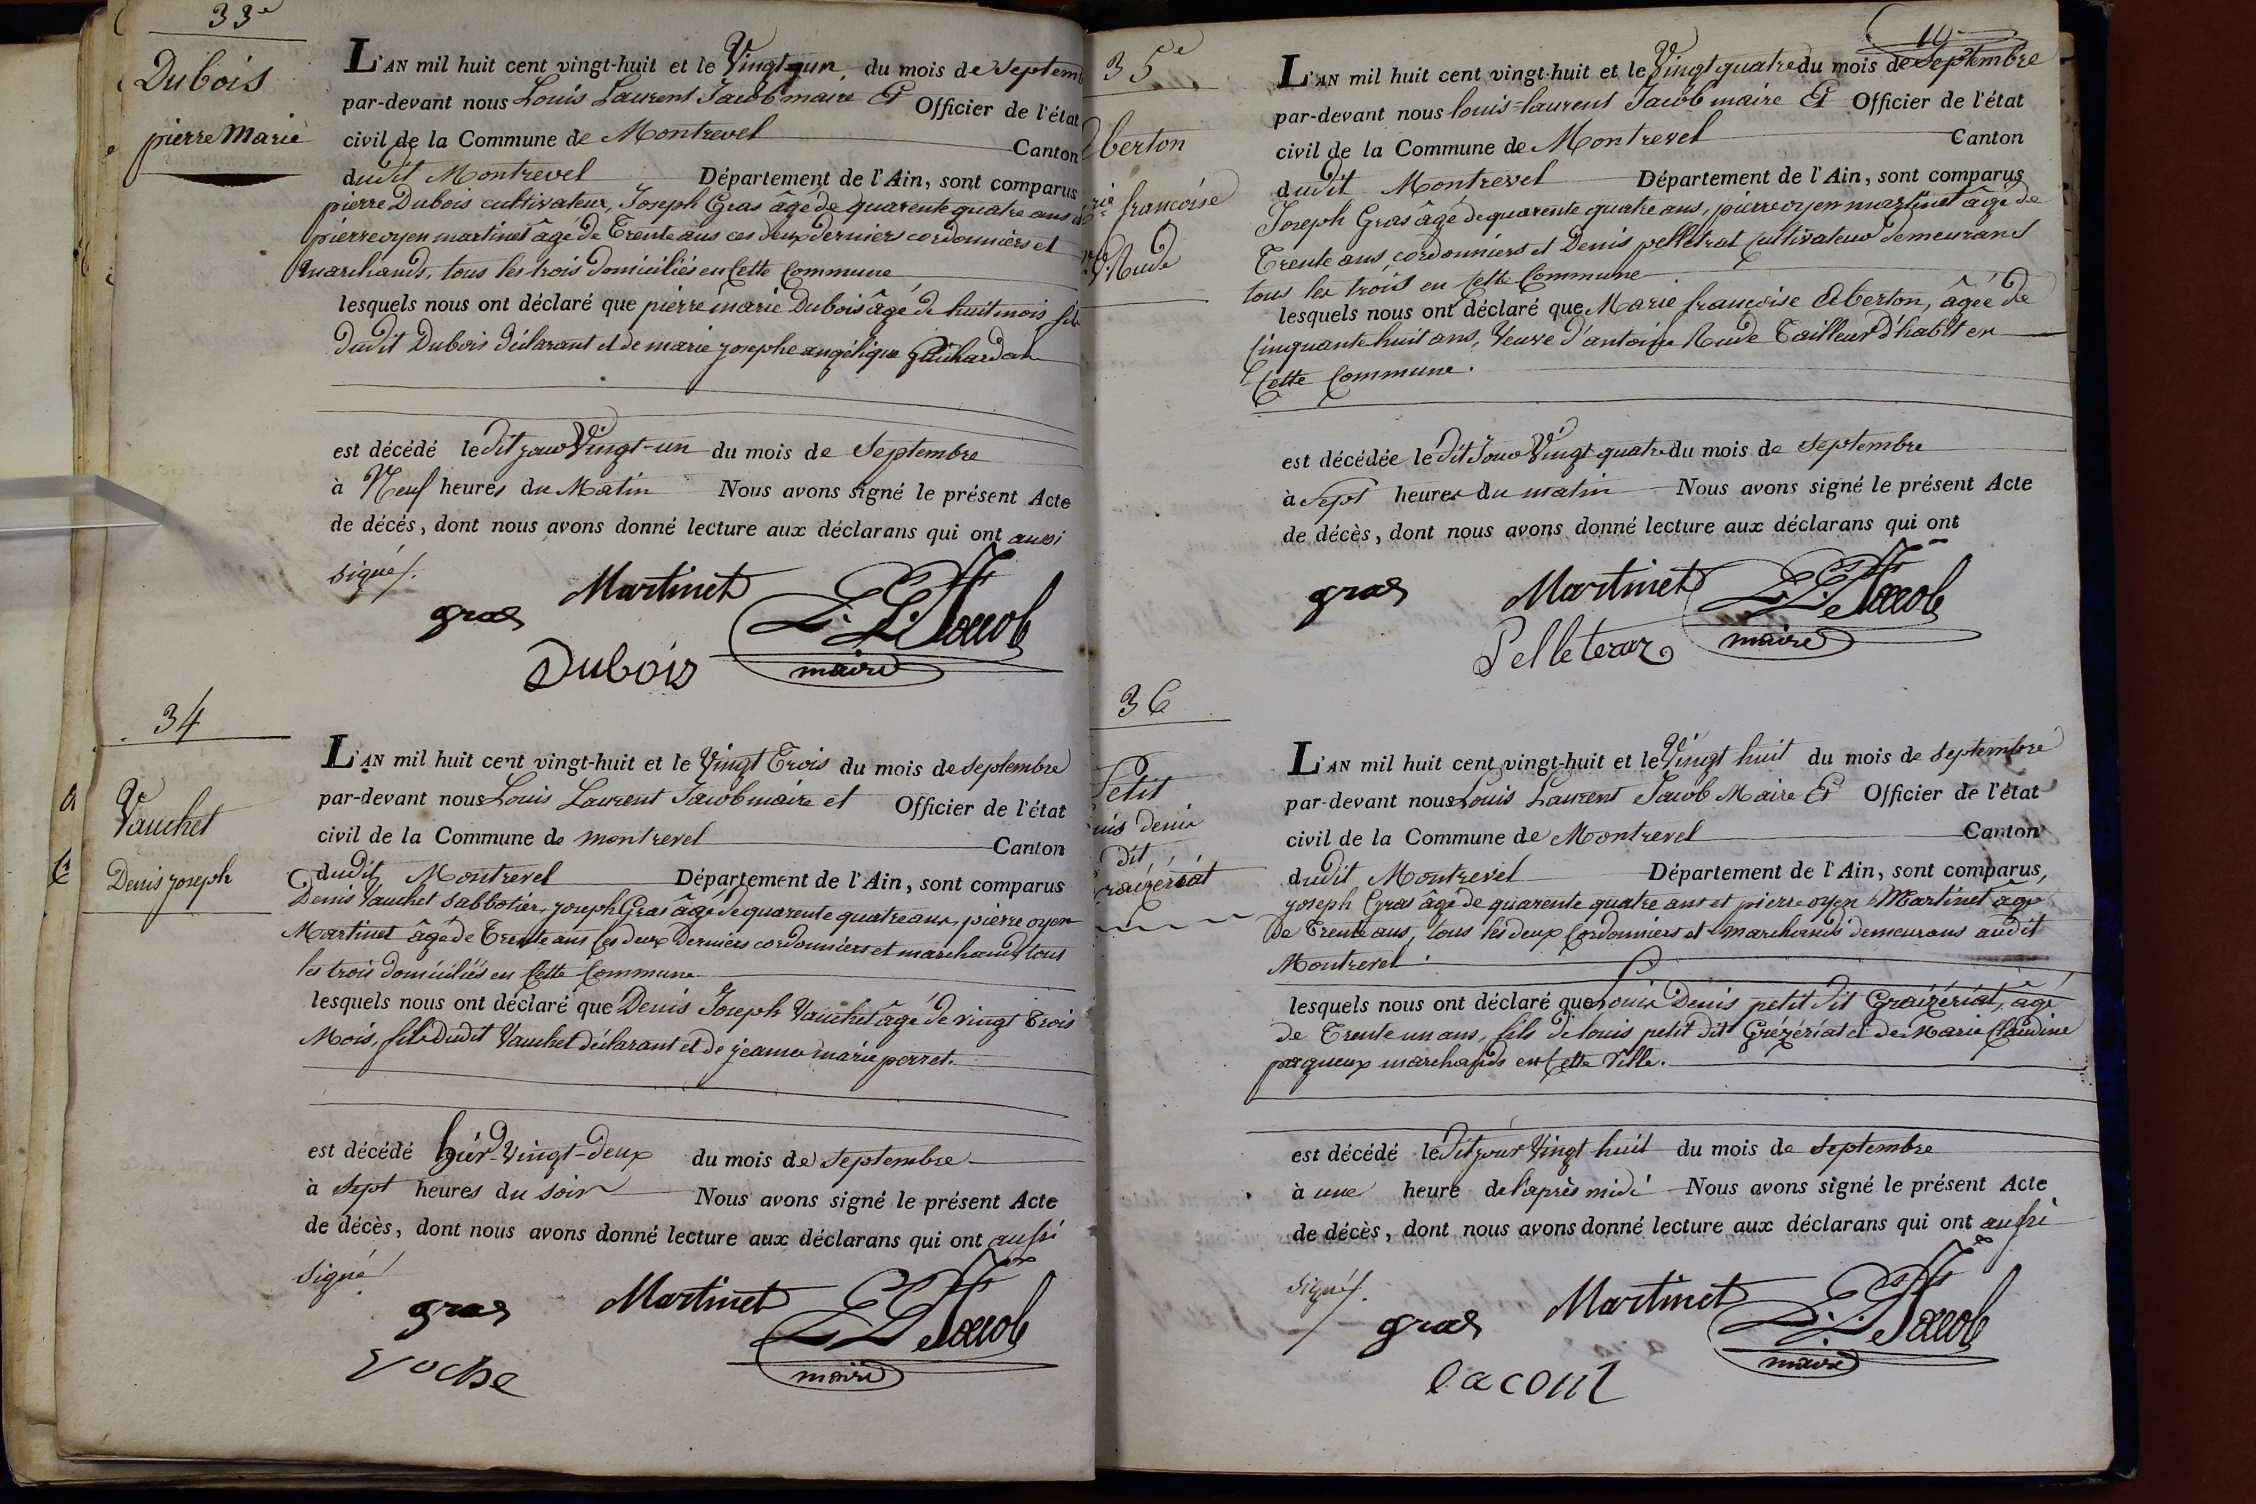 33e
Dubois
pierre Marie
L'AN mil huit cent vingt-huit et le Vingt-un du mois de Septem
par-devant nous Louis Laurent Jacob maire Et Officier de l'état
civil de la Commune de Montrevel Canton
dudit Montrevel Département de l'Ain, sont comparus
pierre Dubois cultivateur, Joseph Gras âgé de quarente quatre ans et
pierre oyen martinet âgé de Trente ans ces deux derniers cordonniers et
marchands, tous les trois domiciliés en Cette Commune
lesquels nous ont déclaré que pierre marie Dubois âgé de huit mois fils
dudit Dubois déclarant et de marie josephe angélique
est décédé le dit jour Vingt-un du mois de Septembre
à Neuf heures du Matin Nous avons signé le présent Acte
de décès, dont nous avons donné lecture aux déclarans qui ont aussi
signé.
gras Martinet L. L. Jacob
Dubois maire
34
Vauchet
Denis joseph
L'AN mil huit cent vingt-huit et le Vingt Trois du mois de Septembre
par-devant nous Louis Laurent Jacob maire et Officier de l'état
civil de la Commune de montrevel Canton
dudit Montrevel Département de l'Ain, sont comparus
Denis Vauchet sabbotier, joseph Gras âgé de quarente quatre ans, pierre oyen
Martinet âgé de Trente ans Ces deux Derniers cordonniers et marchands tous
les trois domiciliés en Cette Commune
lesquels nous ont déclaré que Denis Joseph Vauchet âgé de vingt Trois
Mois, fils dudit Vauchet déclarant et de jeanne marie perret.
est décédé hier Vingt-deux du mois de Septembre
à Sept heures du soir Nous avons signé le présent Acte
de décès, dont nous avons donné lecture aux déclarans qui ont aussi
Signé
gras Martinet L L Jacob
Voche maire
10
35e
berton
francoise
Rude
L'AN mil huit cent vingt-huit et le Vingt quatre du mois de Septembre
par-devant nous louis-laurent Jacob maire Et Officier de l'état
civil de la Commune de Montrevel Canton
dudit Montrevel Département de l'Ain, sont comparus
Joseph Gras âgé de quarente quatre ans, pierre oyen martinet âgé de
Trente ans cordonniers et Denis pelletrat Cultivateur demeurans
tous les trois en Cette Commune
lesquels nous ont déclaré que Marie françoise Eberton, âgée de
Cinquante huit ans, Veuve d'antoine Rude Tailleur d'habit en
Cette Commune.
est décédée le dit Jour Vingt quatre du mois de Septembre
à Sept heures du matin Nous avons signé le présent Acte
de décès, dont nous avons donné lecture aux déclarans qui ont
gras Martinet L. L. Jacob
Pelleterar maire
36
Petit
uis denis
dit
L'AN mil huit cent vingt-huit et le Vingt huit du mois de Septembre
par-devant nous Louis Laurent Jacob Maire Et Officier de l'état
civil de la Commune de Montrevel Canton
dudit Montrevel Département de l'Ain, sont comparus,
joseph Gras âgé de quarente quatre ans et pierre oyen Martinet âgé
De Trente ans, tous les deux Cordonniers et marchands demeurans audit
Montrevel.
lesquels nous ont déclaré que Louis Denis petit dit Graizériat, âgé
de Trente un ans, fils de louis petit dit Grézériat et de Marie Claudine
paqueux marchands en Cette Ville.
est décédé le dit jour Vingt huit du mois de Septembre
à une heure de l'après midi Nous avons signé le présent Acte
de décès, dont nous avons donné lecture aux déclarans qui ont aussi
signé.
gras Martinet L. L. Jacob
lacout maire